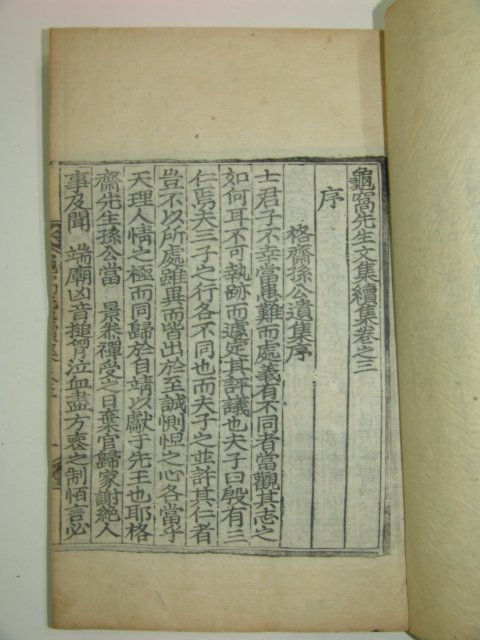 龜窩先生文集續集卷之三
序
格齋孫公遺集序
士君子不幸當患難而處義有不同者當觀其志之
如何耳不可執跡而遽定其評議也夫子曰殷有三
仁焉夫三子之行各不同也而夫子之並許其仁者
豈不以所處雖異而皆出於至誠惻怛之心各當乎
天理人情之極而同歸於自靖以獻于先王也耶格
齋先生孫公當 景泰禪受之日棄官歸家謝絶人
事及聞 端廟凶音搥胷泣血盡方喪之制恒言必